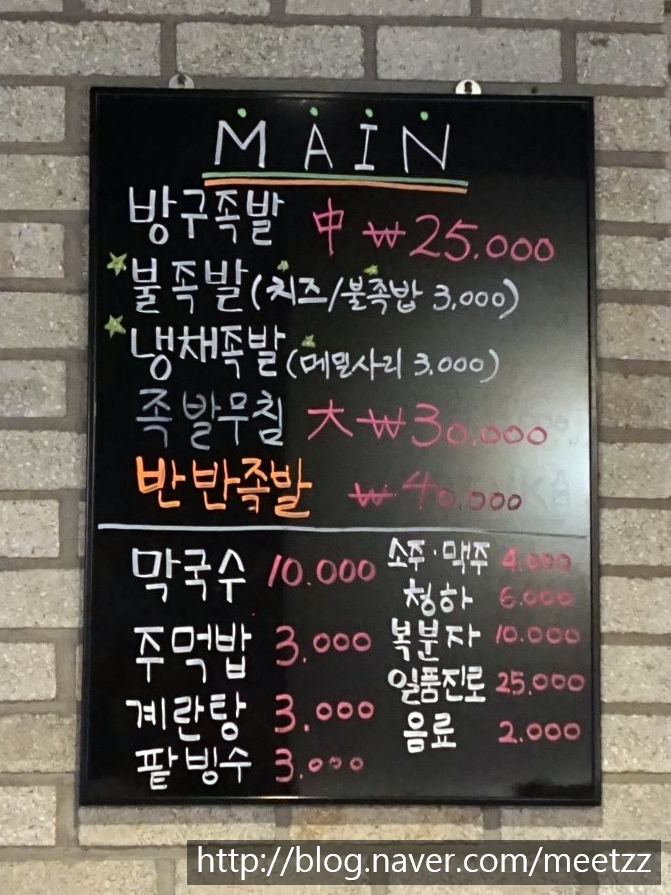 MAIN
방구족발 中 ₩25.000
불족발(치즈/불족밥 3,000)
냉채족발(메밀사리 3.000)
족발무침 大 ₩30,000
반반족발 ₩40.000
막국수 10.000
주먹밥 3.000
계란탕 3.000
팥빙수 3.000
소주·맥주 4.000
청하 6.000
복분자 10.000
일품진로 25,000
음료 2.000
http://blog.naver.com/meetzz